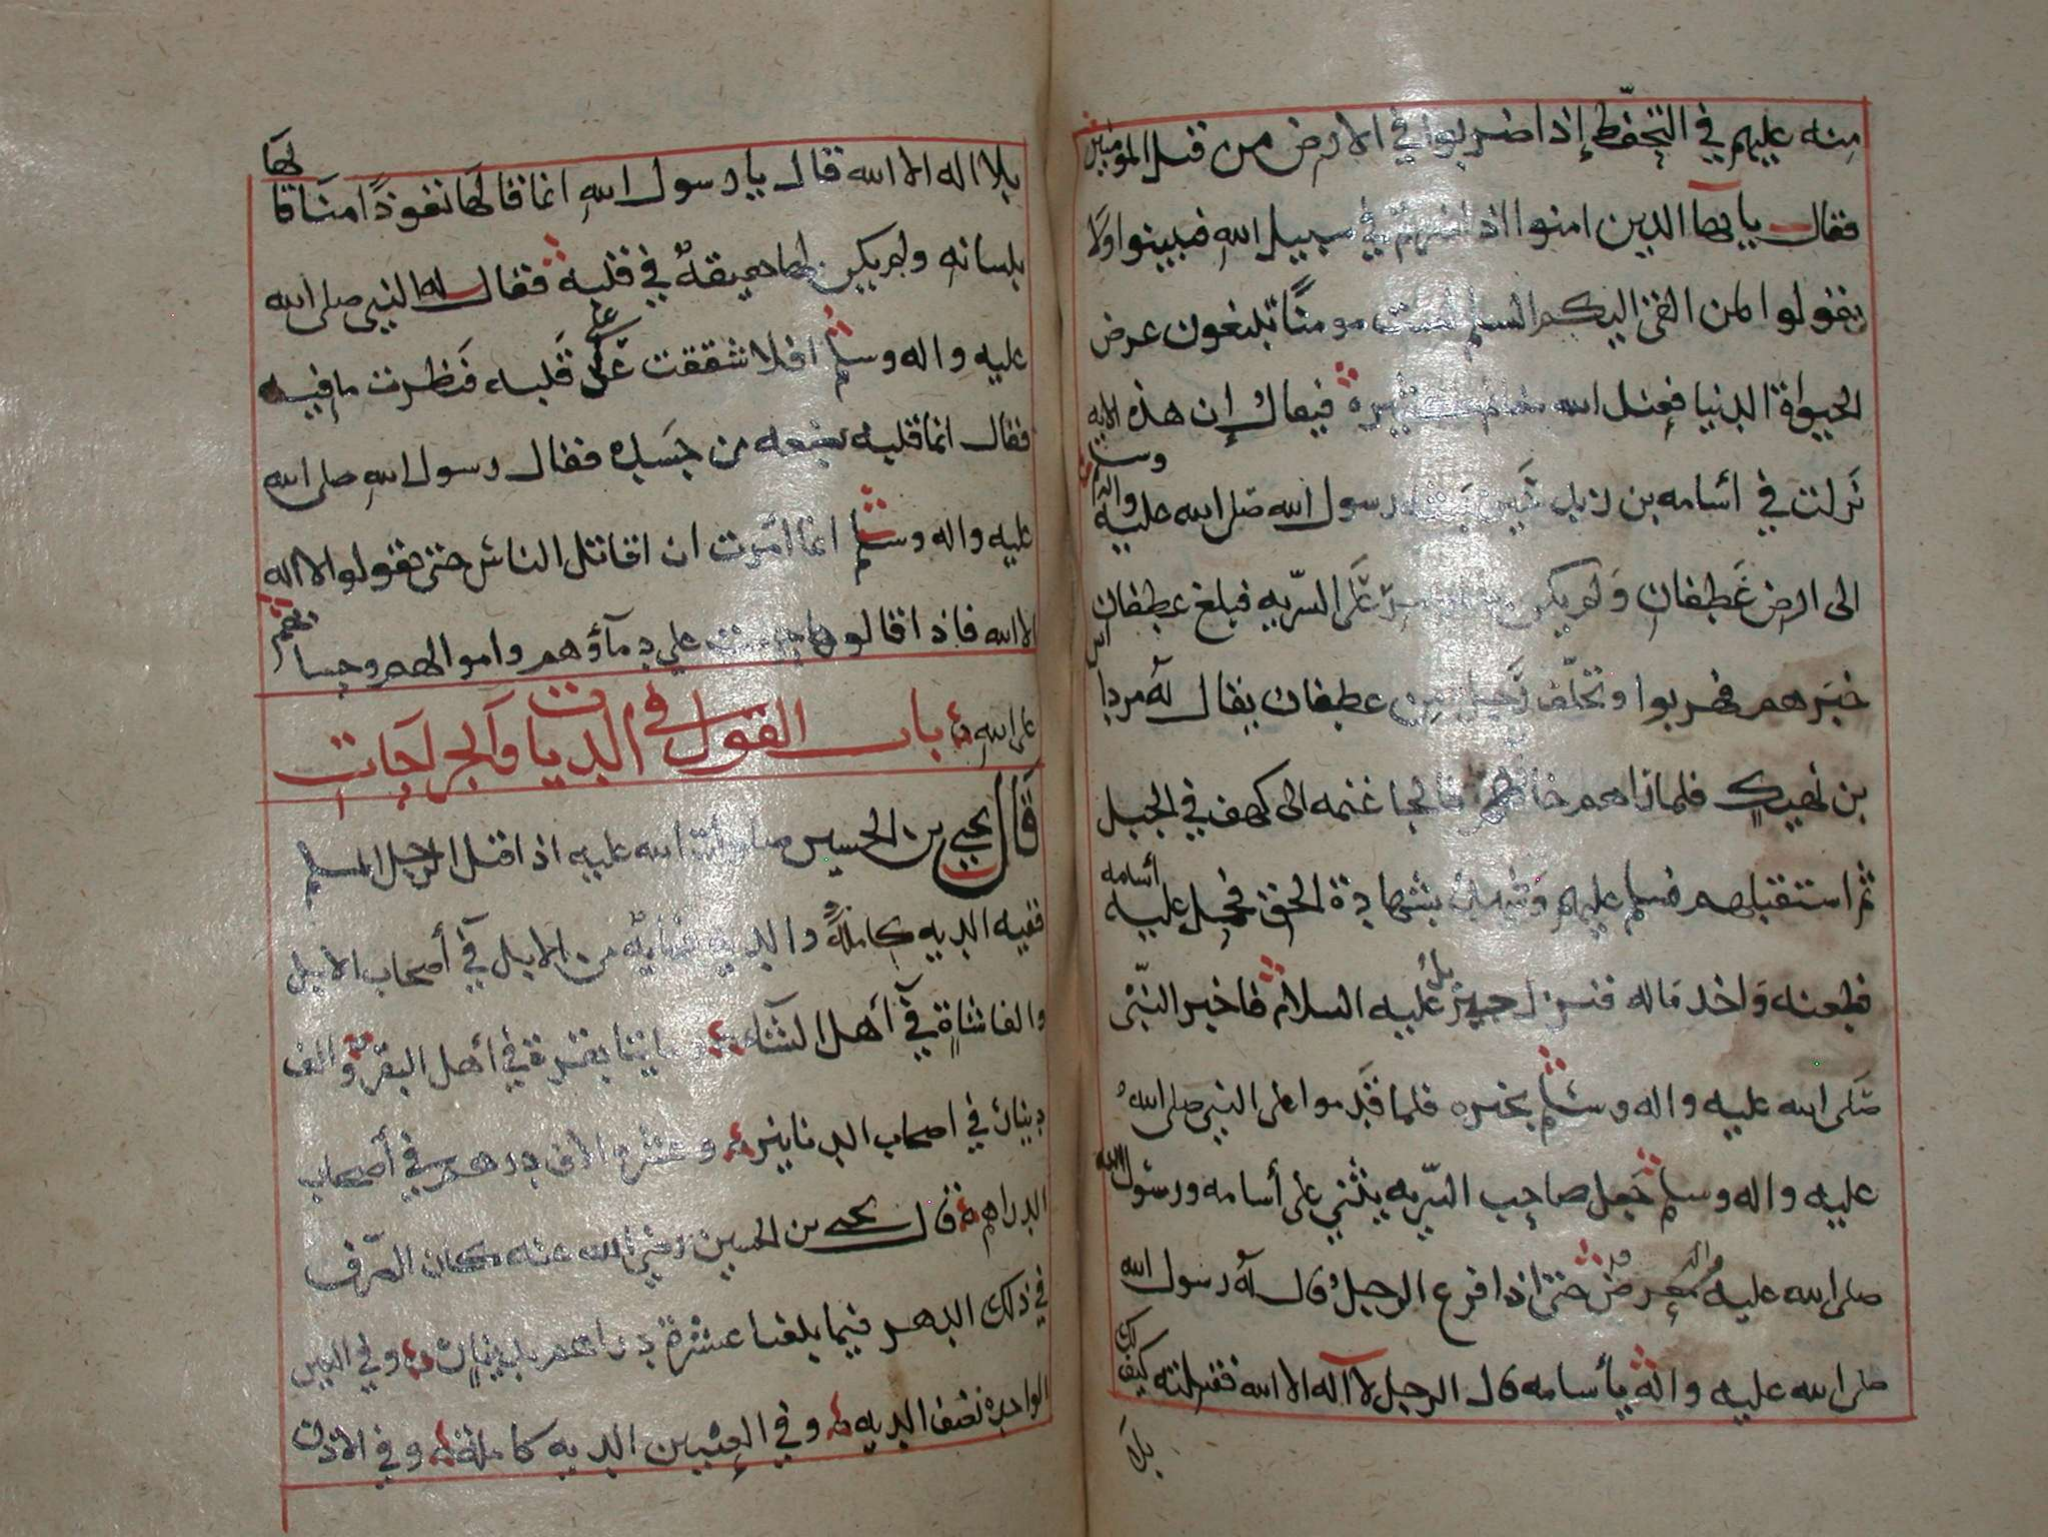 منه عليهم في التحفظ إذا ضربوا في الارض من قتل المومنين
فقال يايها الذين امنوا اذا ضربتم في سبيل الله فتبينوا ولا
تقولوا لمن القى اليكم السلم لست مومنًا تبتغون عرض
الحيواة الدنيا فعند الله مغانم كثيرة فيقال إن هذه الايه
نزلت في أسامه بن زيد حين بعثه رسول الله صلى الله عليه واله وسلم
الى ارض غَطفان ولم يكن على السّريه فبلغ غطفان
خبرهم فهربوا وتخلّف رجل من غطفان يقال له مرداس
بن نهيك فلما راهم خافهم فالجا غنمه الى كهف في الجبل
ثم استقبلهم فسلم عليهم وشهد بشهادة الحق فحمل عليه أسامه
فطعنه واخذ ماله فنزل جبريل عليه السلام فاخبر النبي
صلى الله عليه واله وسلم بخبره فلما قدموا على النبي صلى الله
عليه واله وسلم جعل صاحب السّريه يثني على أسامه ورسول الله
صلى الله عليه واله معرض حتى اذا فرغ الرجل قال له رسول الله
صلى الله عليه واله يا أسامه قال الرجل لا اله الا الله فقتلته كيف لك
بلا
بلا اله الا الله قال يا رسول الله انما قالها تعوذًا منا قالها
بلسانه ولم يكن لها حقيقةٌ في قلبه فقال له النبي صلى الله
عليه واله وسلم افلا شققت على قلبه فنظرت ما فيه
فقال انما قلبه بضعه من جَسَده فقال رسول الله صلى الله
عليه واله وسلم انما امرت ان اقاتل الناس حتى يقولوا لا اله
الا الله فاذا قالوها حرمت علي دمآؤهم واموالهم وحسابهم
على الله باب القول في الديات والجراحات
قال يحيى بن الحسين صلوات الله عليه اذا قتل الرجل المسلم
ففيه الديه كاملةً والديه مايه من الابل في أصحاب الابل
والفا شاةٍ في أهل الشاء ومايتا بقرة في أهل البقر والف
دينار في اصحاب الدنانير وعشرة الاف درهم في أصحاب
الدراهم قال يحيى بن الحسين رضي الله عنه كان الصّرف
في ذلك الدهر فيما بلغنا عشرة دراهم بدينار وفي العين
الواحده نصف الديه وفي العينين الديه كاملة وفي الاذن